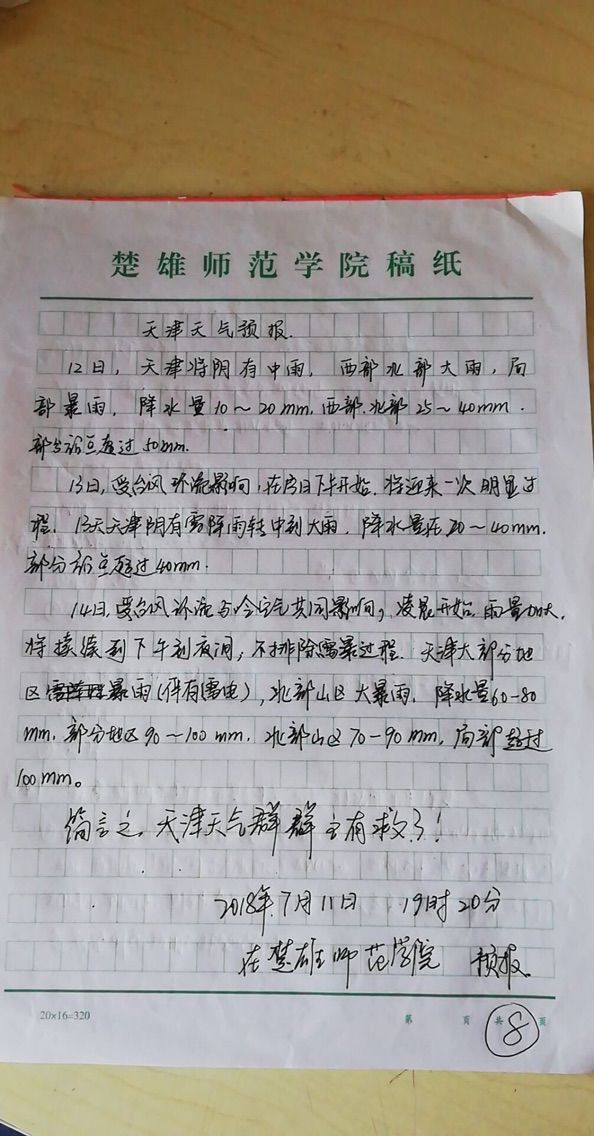 楚雄师范学院稿纸
天津天气预报.
12日，天津将阴有中雨，西部北部大雨，局
部暴雨，降水量10～20mm，西部.北部25～40mm.
部分站点超过50mm.
13日，受台风环流影响，在13日下午开始，将迎来一次明显过
程. 13天天津阴有雷阵雨转中到大雨，降水量在20～40mm.
部分站点超过40mm.
14日，受台风环流与冷空气共同影响，凌晨开始雨量加大，
将接续到下午到夜间，不排除雷暴过程. 天津大部分地
区暴雨(伴有雷电)，北部山区大暴雨. 降水量60-80
mm，部分地区90～100mm. 北部山区70-90mm，局部超过
100mm。
简言之，天津天气群群主有救了！
2018年7月11日 19时20分
在楚雄师范学院 预报.
20×16=320 第 页 共 8 页